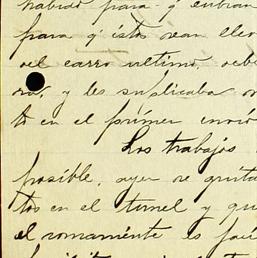 habido para q' entran
para q' éstos sean llev
del carro ultimo, debe
y les suplicaba
to en el primer envió
Los trabajos
posible, ayer se quita
tos en el tunel y qu
el romamente es fác